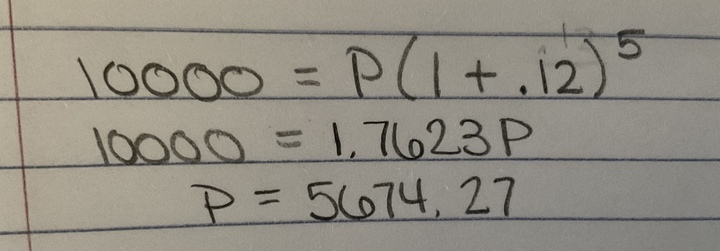 10000 = P(1 + .12)^5
10000 = 1.7623P
P = 5674.27